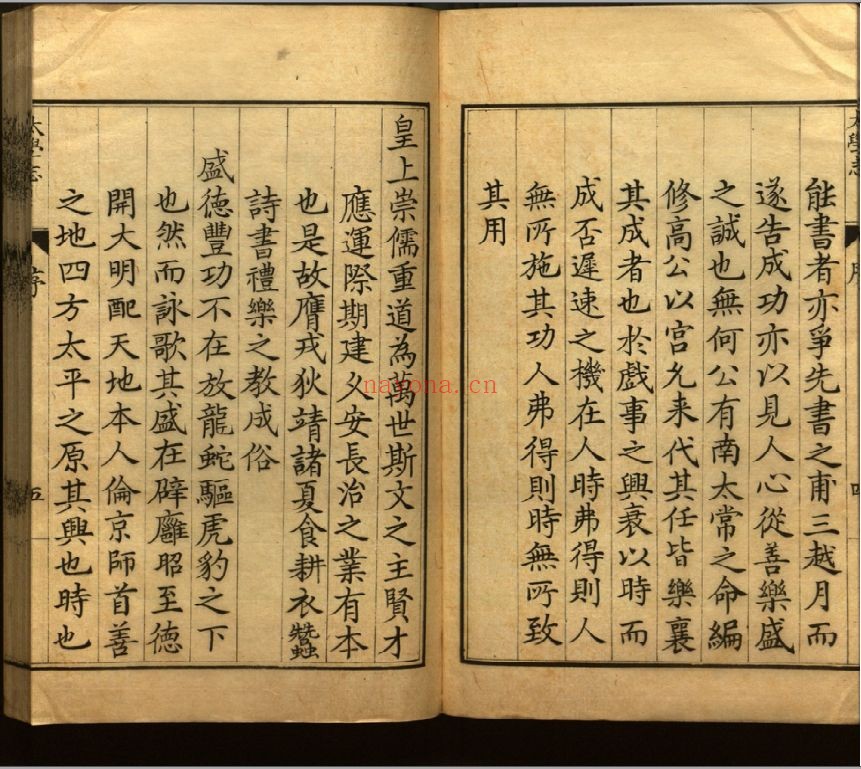 太學志
序
四
能書者亦爭先書之甫三越月而
遂告成功亦以見人心從善樂盛
之誠也無何公有南太常之命編
修高公以宮允来代其任皆樂襄
其成者也於戲事之興衰以時而
成否遲速之機在人時弗得則人
無所施其功人弗得則時無所致
其用
皇上崇儒重道為萬世斯文之主賢才
應運際期建久安長治之業有本
也是故膺戎狄靖諸夏食耕衣蠶
詩書禮樂之教成俗
盛德豐功不在放龍蛇驅虎豹之下
也然而詠歌其盛在辟廱昭至德
開大明配天地本人倫京師首善
之地四方太平之原其興也時也
太學志
序
五
nayona.cn